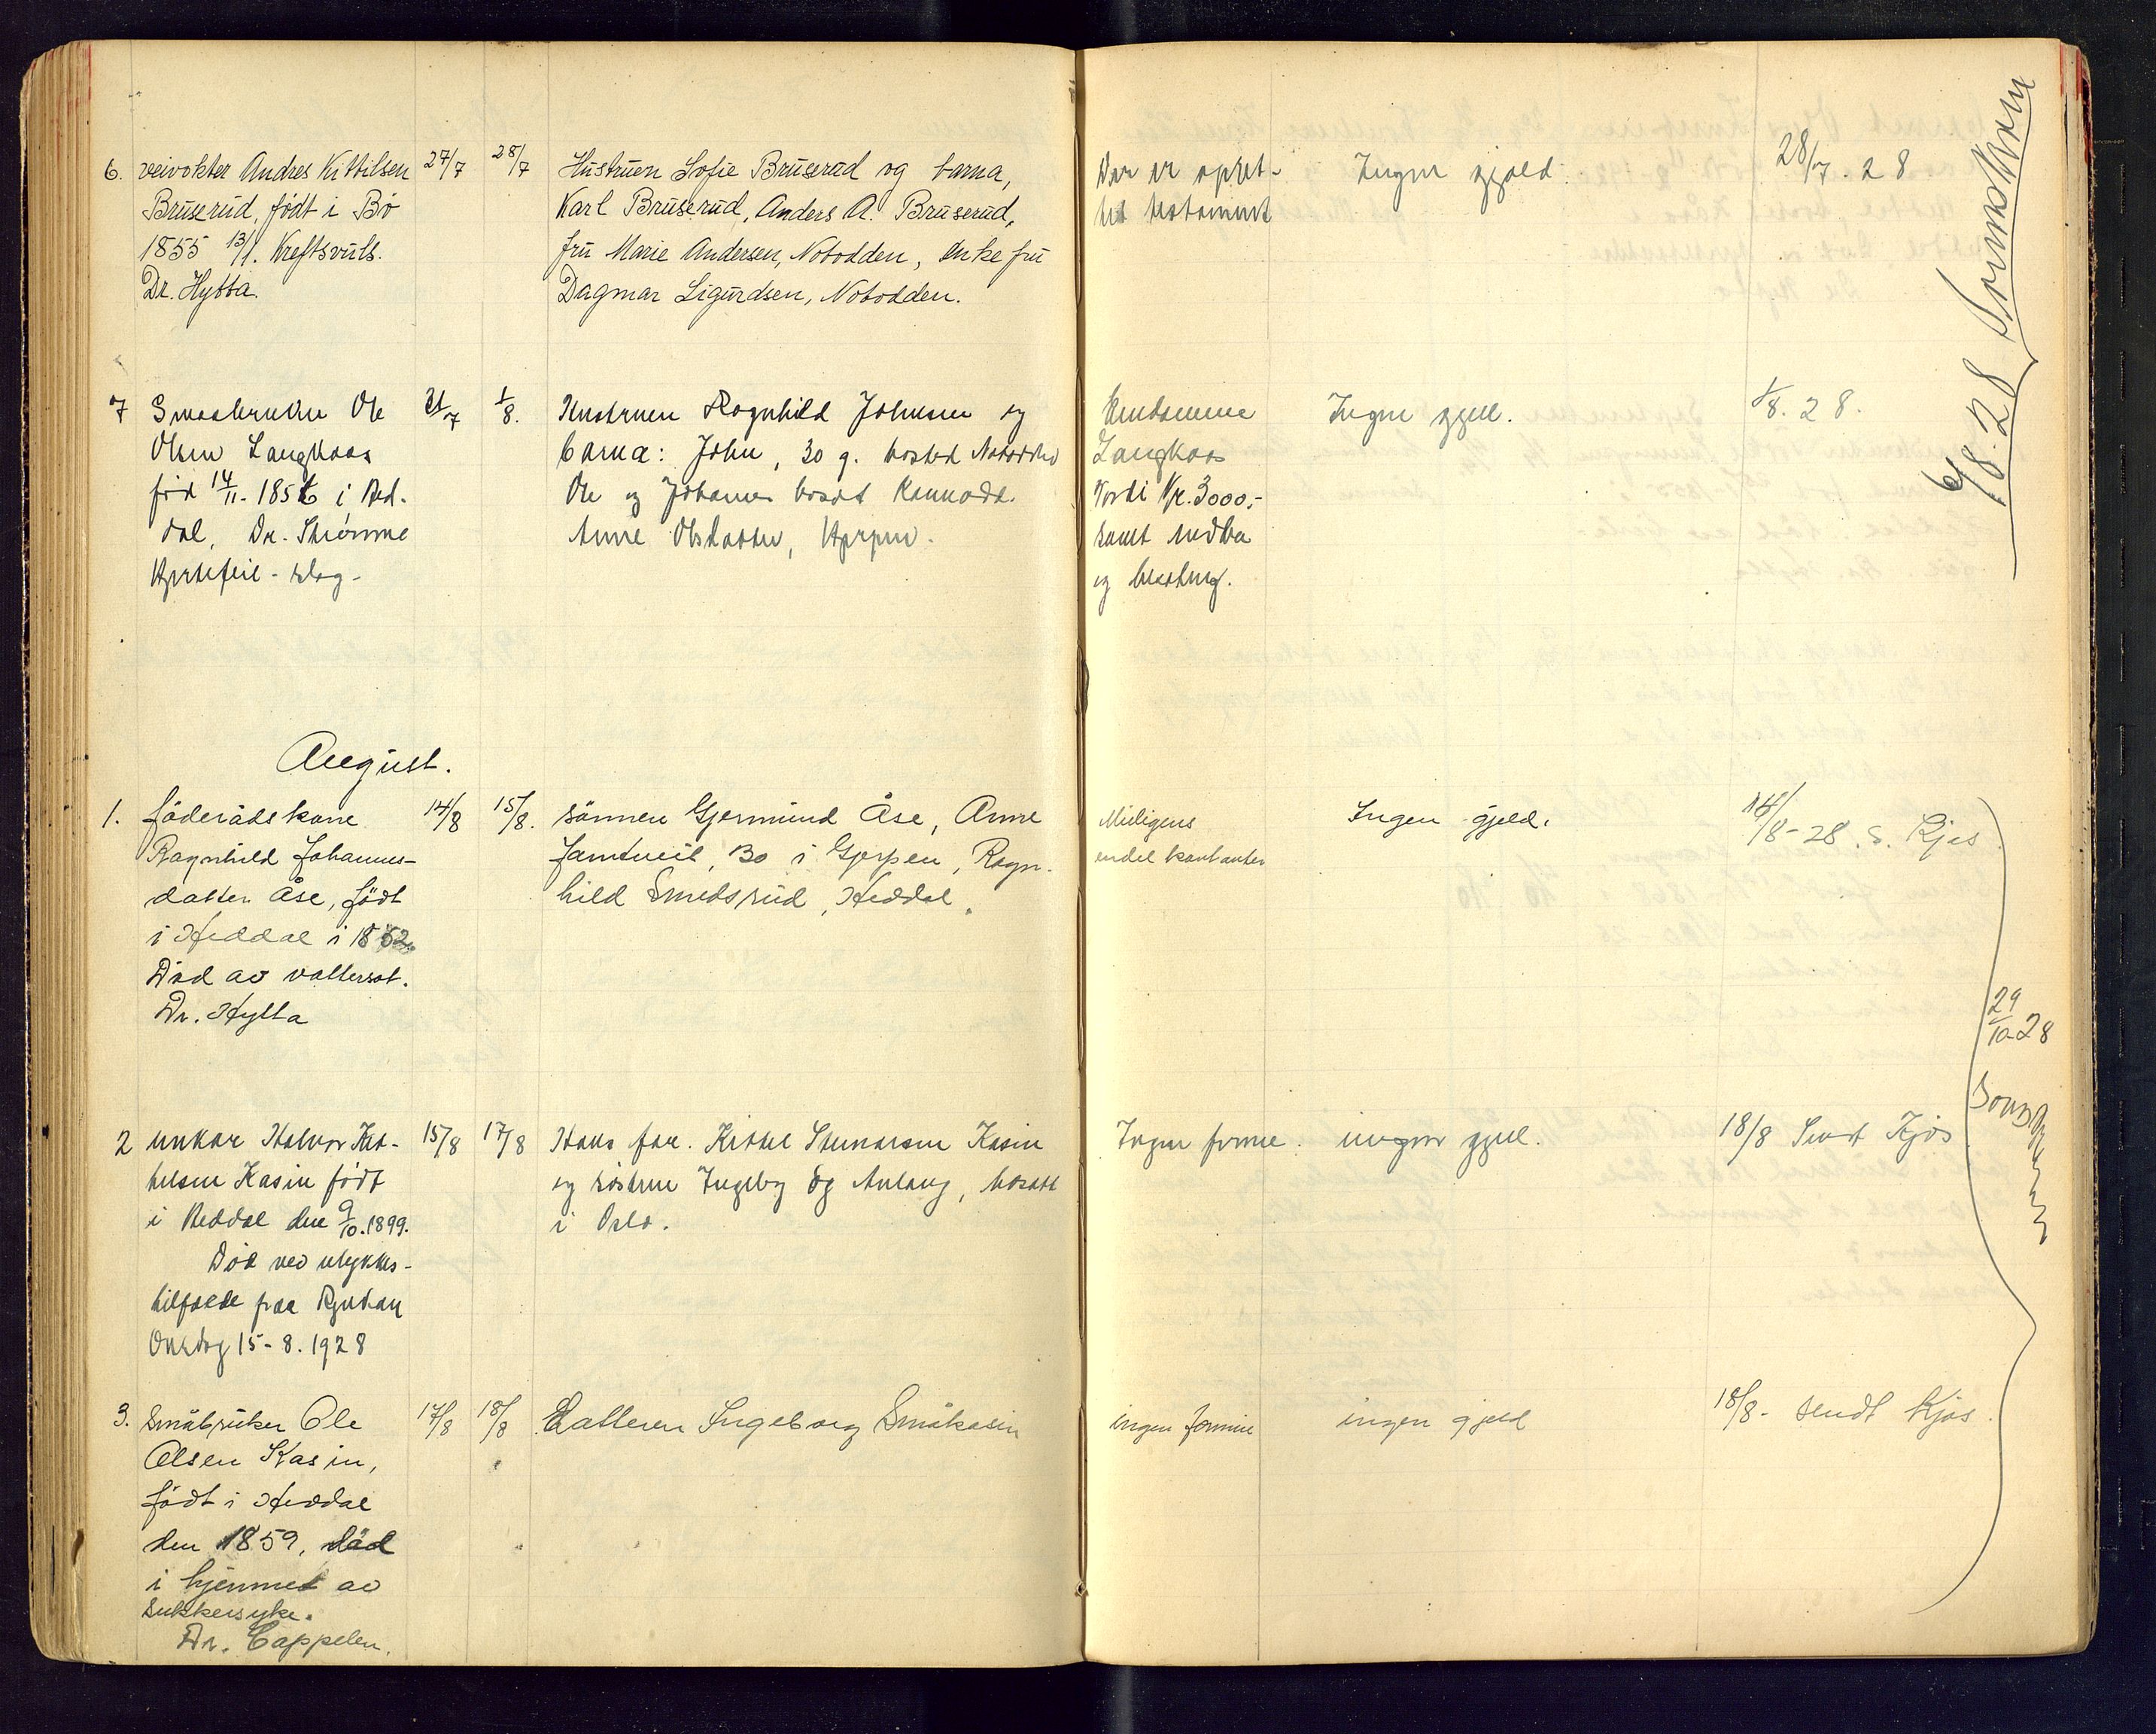 6. veivokter Andres Kittilsen 27/7 28/7 Hustruen Sofie Bruserud og barna,
Bruserud, født i Bø Karl Bruserud, Anders A. Bruserud,
1855 13/1. Kreftsvuls. fru Marie Andersen, Notodden, enke fru
Dr. Hytta. Dagmar Sigurdsen, Notodden.
Der er opret-
tet testament
Ingen gjeld.
28/7. 28
7 Smaabruker Ole 31/7 1/8. Hustruen Ragnhild Johnsen og
Olsen Langkaas barna: John, 30 g. bosted Notodden
fød 14/11. 1856 i Hed- Ole og Johannes bosat
dal, Dr. Strømme Anne Olsdatter, Gjerpen.
Hjertefeil - slag -
Eiendommen
Langkaas
Verdi Kr. 3000,-
samt indbo
og besetning.
Ingen gjeld.
1/8. 28.
6/8. 28
August.
1. föderådskone 14/8 15/8. sönnen Gjermund Åse, Anne
Ragnhild Johannes- Jamtveit, Bo i Gjerpen, Ragn-
datter Åse, födt hild Smedsrud, Heddal.
i Heddal i 1852.
Död av vattersot.
Dr. Hytta
Muligens
endel kontanter
Ingen gjeld.
14/8-28. S. Kjos
29/10-28
2 unkar Halvor Kit- 15/8 17/8 Hans far. Kittel Steinarsen Kasin
telsen Kasin født og søstrene Ingeby og Aslaug, bosatt
i Heddal den 9/10. 1899. i Oslo.
Död ved ulykkes-
tilfælde paa Rjukan
Onsdag 15-8. 1928
Ingen formue. ingen gjeld.
18/8 Sendt Kjos
3. Småbruker Ole 17/8 18/8 Datteren Ingeborg Småkasin
Olsen Kasin,
födt i Heddal
den 1859, död
i hjemmet av
sukkersyke.
Dr. Cappelen.
ingen formue ingen gjeld
18/8- sendt Kjos.